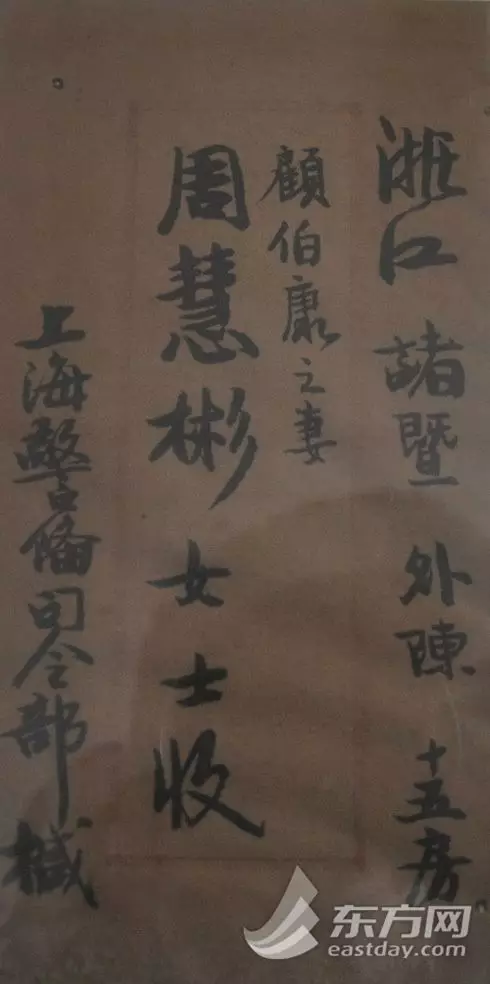 浙江 諸暨 外陳 十五房
顧伯康之妻
周慧彬女士收
上海警備司令部械
东方网
eastday.com